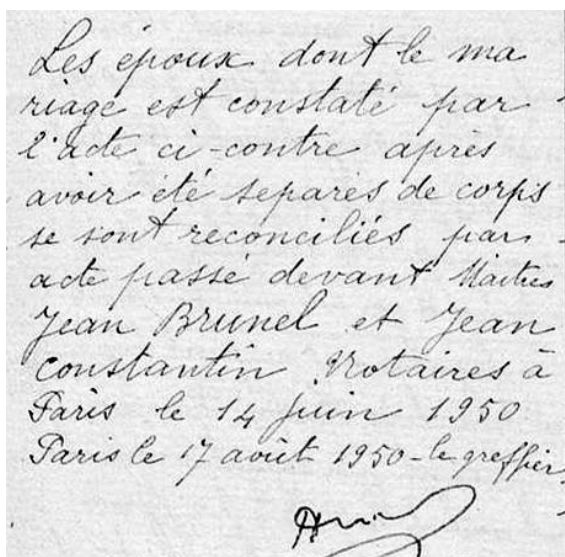 Les époux dont le ma
riage est constaté par
l'acte ci-contre après
avoir été separés de corps
se sont reconciliés par
acte passé devant Maitres
Jean Brunel et Jean
Constantin Notaires à
Paris le 14 juin 1950
Paris le 17 août 1950 - le greffier